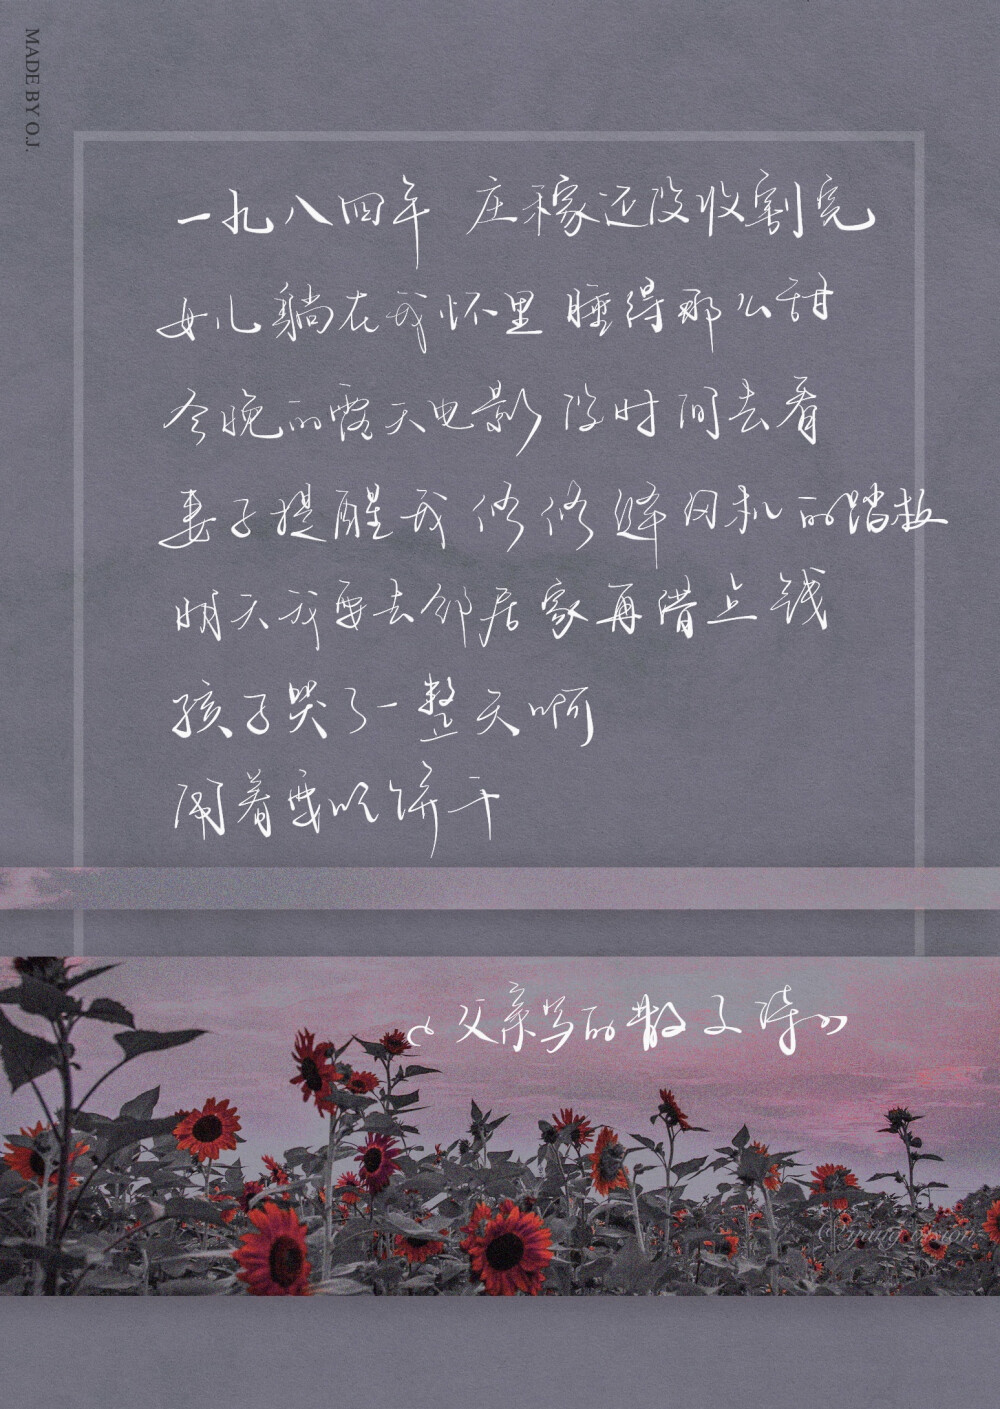 MADE BY O.J.
一九八四年 庄稼还没收割完
女儿躺在我怀里 睡得那么甜
今晚的露天电影 没时间去看
妻子提醒我 修修缝纫机的踏板
明天我要去邻居家再借点钱
孩子哭了一整天啊
闹着要吃饼干
《父亲写的散文诗》
© young vision